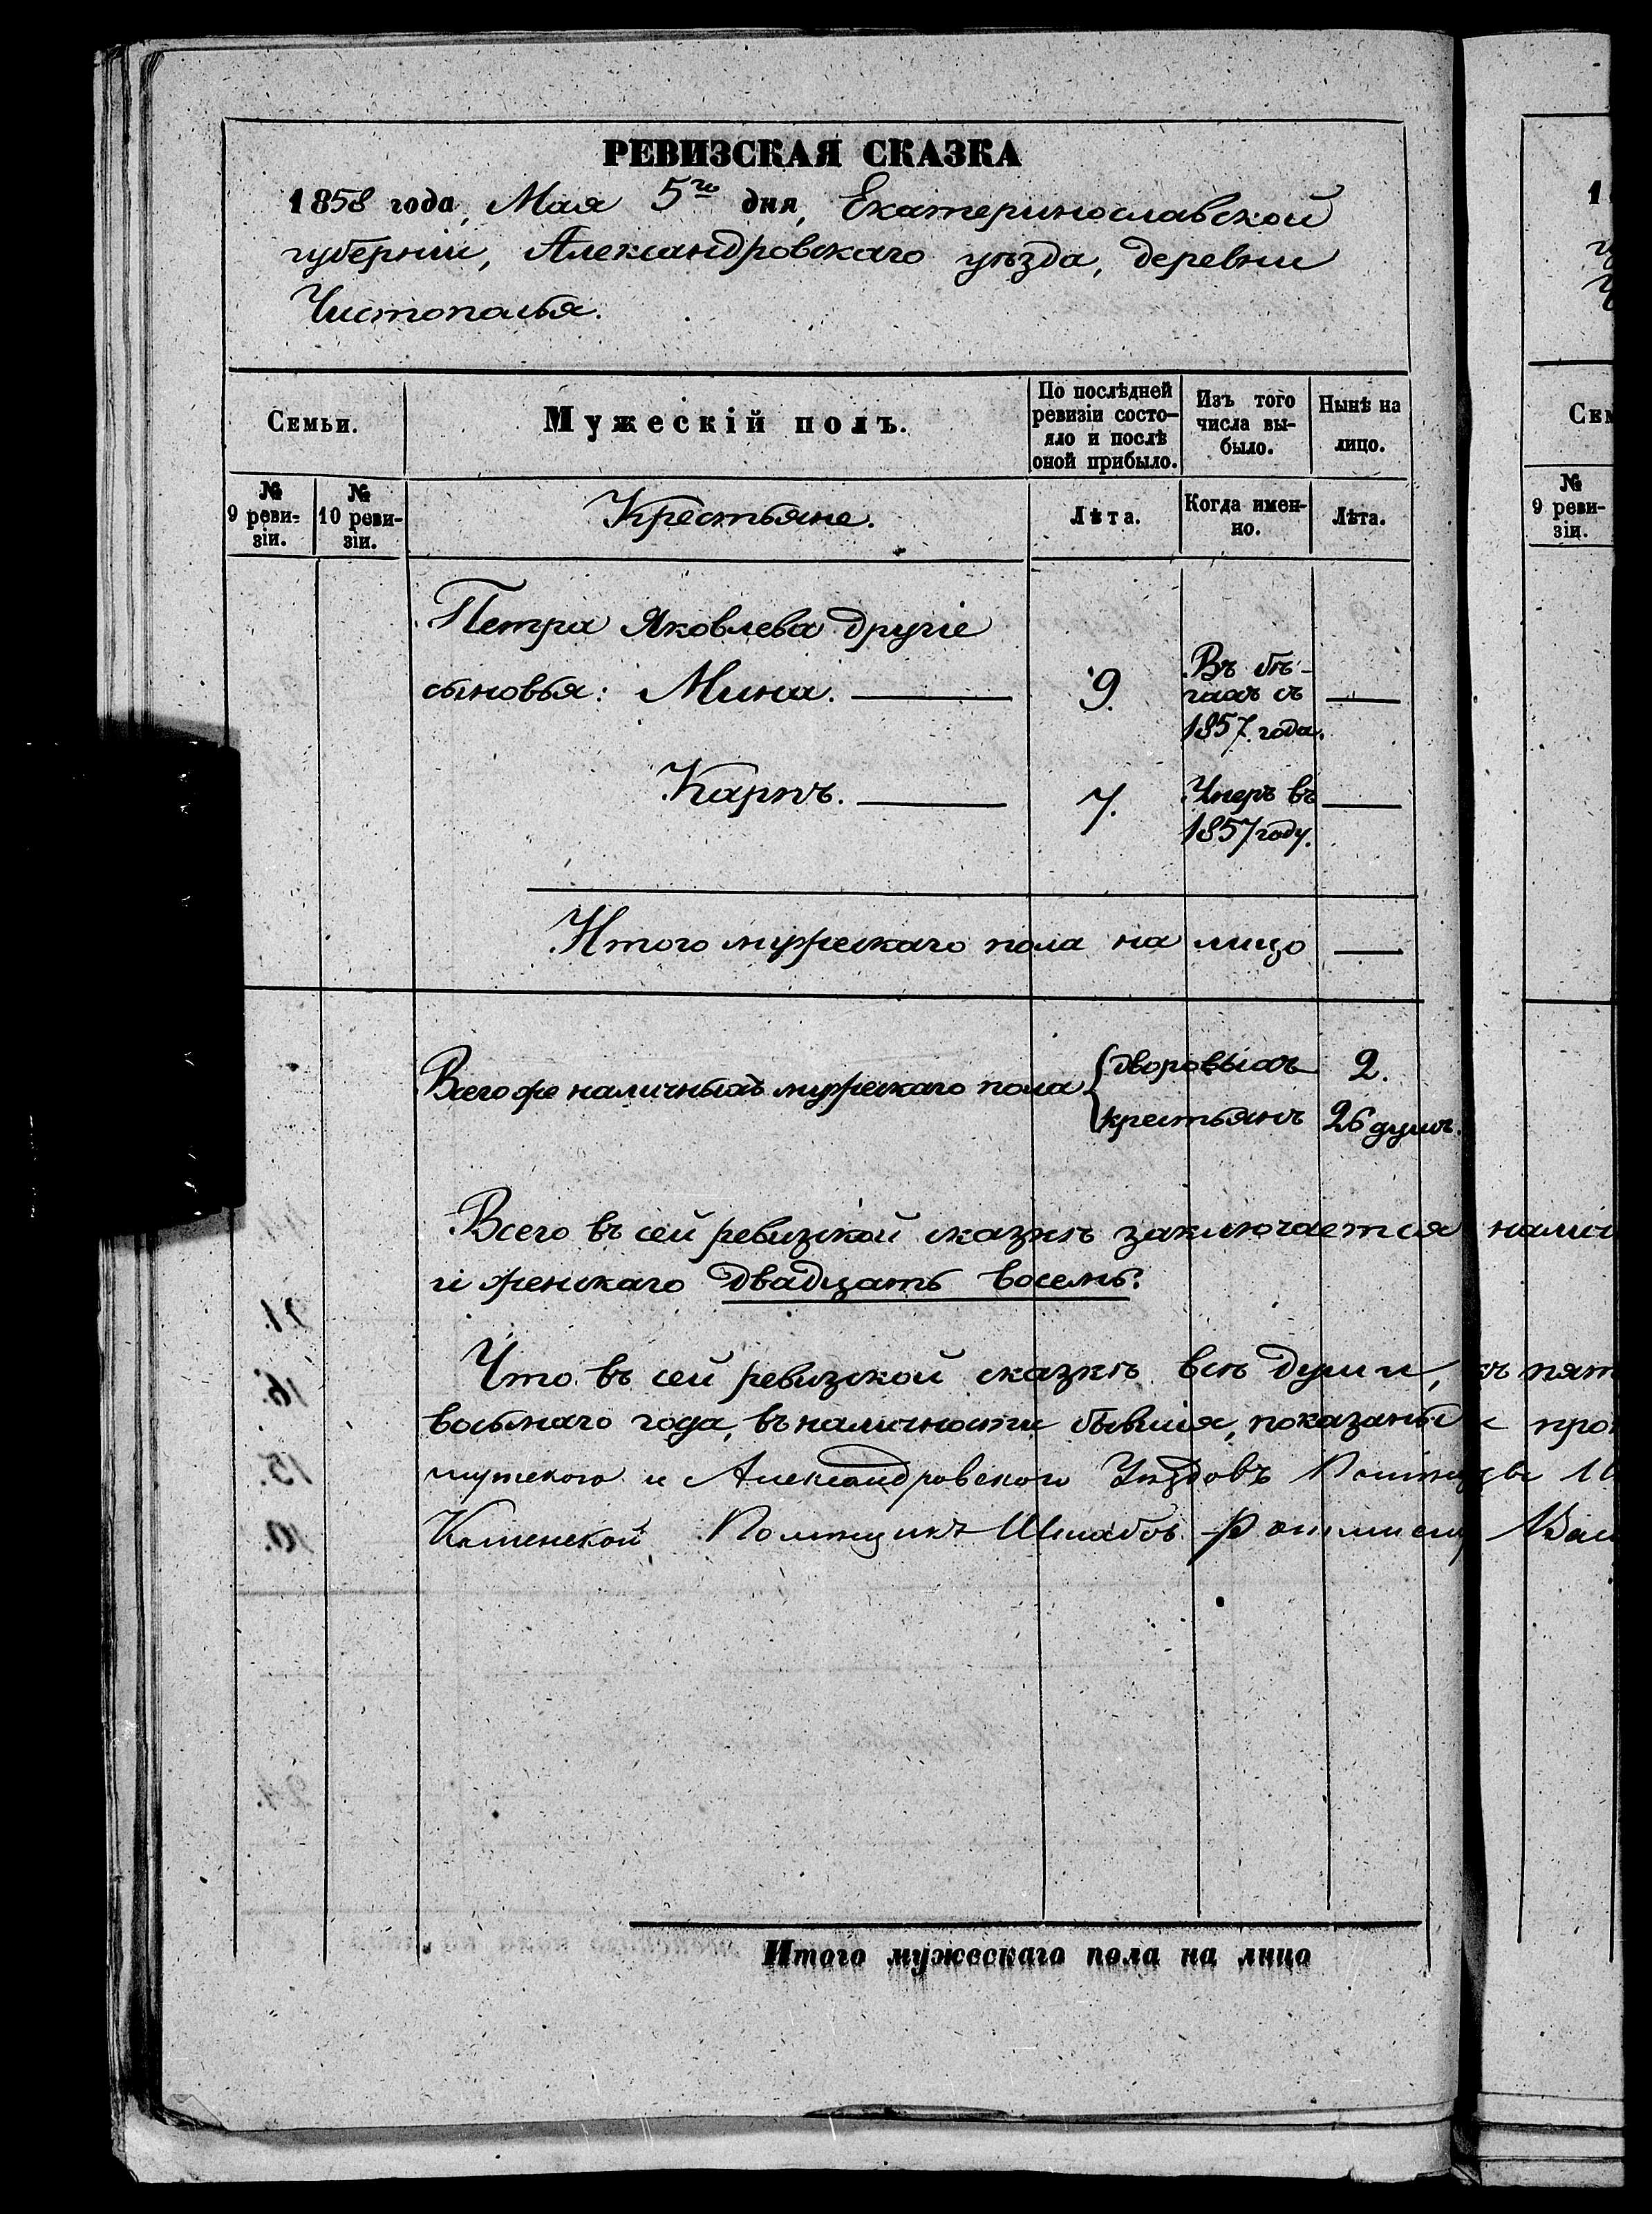 РЕВИЗСКАЯ СКАЗКА
1858 года, Мая 5го дня, Екатеринославской
губерніи, Александровскаго уѣзда, деревни
Чистополья.
Семьи.
Мужескій полъ.
По послѣдней
ревизіи состо-
яло и послѣ
оной прибыло.
Изъ того
числа вы-
было.
Нынѣ на
лицо.
№
9 реви-
зіи.
№
10 реви-
зіи.
Крестьяне.
Лѣта.
Когда имен-
но.
Лѣта.
Петра Яковлева другіе
сыновья: Мина. — 9. Въ бѣ-
гахъ съ
1857 года. —
Карпъ. — 7. Умеръ въ —
1857 году.
Итого мужескаго пола на лицо —
Всего же наличныхъ мужескаго пола
дворовыхъ 2.
крестьянъ 26 душъ.
Всего въ сей ревизской сказкѣ заключается налич
и женскаго двадцать восемь.
Что въ сей ревизской сказкѣ всѣ души, къ пят
восьмаго года, въ наличности бывшія, показаны и про
и Александровского Уѣздовъ
Каменской Помѣщикъ Штабсъ-Ротмистръ
Итого мужескаго пола на лицо
№
9 реви-
зіи.